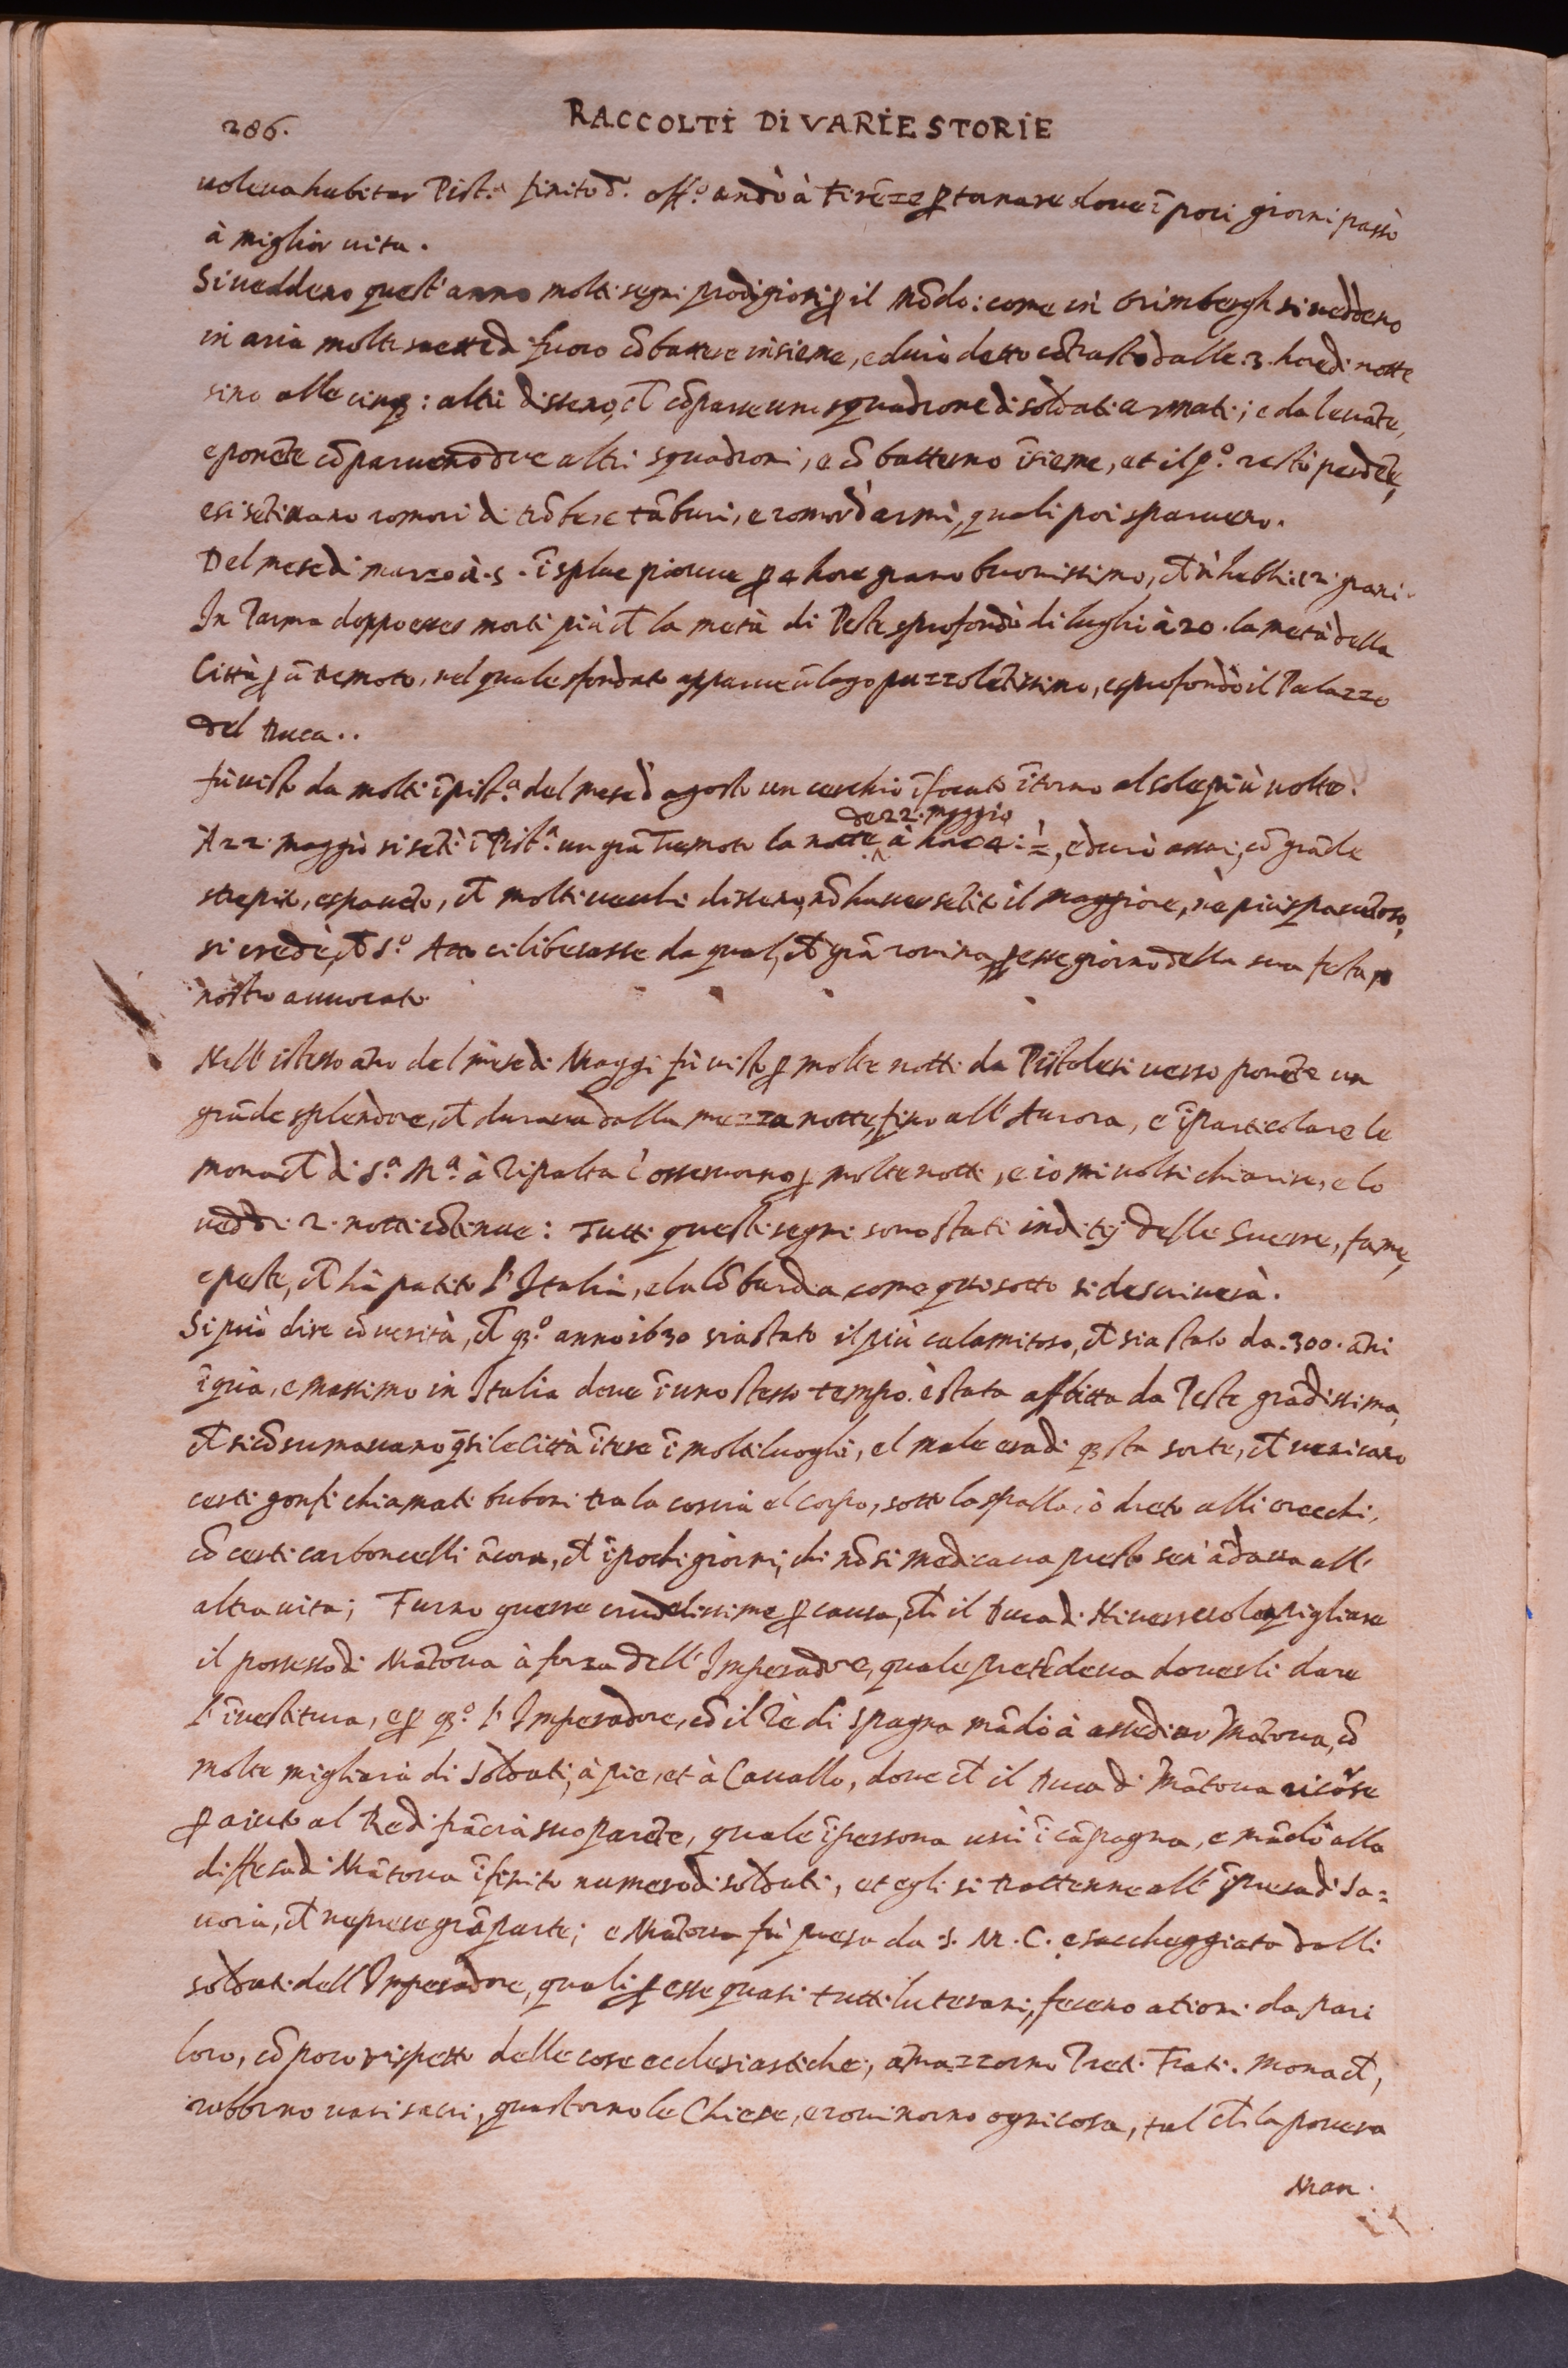 286.
RACCOLTI DI VARIE STORIE
voleva habitar Pist.ª finito d.º off.º andò à Firēze ꝑ tornare dove ī poci giorni passò
à miglior vita.
Si veddeno quest'anno molti segni prodigiosi ꝑ il mōdo: come in Brimbergh si veddeno
in aria molte saette di fuoco cōbattere insieme, e durò detto cōtrasto dalle 3. hore di notte
sino alle cinqꝫ: altri disseno, ch̄ cōparse uno squadrone di soldati armati; e da levāte,
e ponēte cōparveno due altri squadroni, e cōbatterno īsieme, et il p.º restò perdēte,
e si sētivano romori di trōbe, e tāburi, e romor d'armi, quali poi sparvero.
Del mese di marzo à 5. ī splue piovve ꝑ 4 hore grano buonissimo, ch̄ n'hebbi 12. grani.
In Parma doppo esser morti più ch̄ la metà di Peste sprofondò di luglio à 20. la metà della
Città ꝑ ū tremoto, nel quale sfondato apparve ū lago puzzolētissimo, e sprofondò il Palazzo
del Duca..
Fù visto da molti ī Pist.ª del mese d'agosto un cerchio īfocato ītorno al sole più volte.
de 22. maggio
A 22. maggio si sētì ī Pist.ª un grā Tremoto la notte à hore 4. ½, e durò assai, cō grāde
strepito, e spavēto, ch̄ molti vecchi disseno, nō haver sētito il maggiore, nè più spavētoso,
si credè, ch̄ S.º Atto ci liberasse da qual, ch̄ grā rovina ꝑ esse giorno della sua festa ꝑ
nostro avvocato
Nell'istesso āno del mese di Maggi fù visto ꝑ molte notti da Pistolesi verso ponēte un
grāde splendore, ch̄ durava dalla mezza notte, fino all'Aurora, e ī particolare le
monach̄ di S.ª M.ª à Ripalta l'osservorno ꝑ molte notti, e io mi volsi chiarire, e lo
veddi 2. notti cōtinue: Tutti questi segni sono stati inditij delle Guerre, fame,
e peste, ch̄ hà patito l'Italia, e la Lōbardia come qui sotto si descriverà.
Si può dire cō verità, ch̄ qꝫ.º anno 1630 sia stato il più calamitoso, ch̄ sia stato da 300. āni
ī quà, e massimo in Italia dove ī uno stesso tempo è stata afflitta da Peste grādissima,
ch̄ si cōsumavano q̄si le Città ītere ī molti luoghi, el male era di qꝫsta sorte, ch̄ venivano
certi gonfi chiamati buboni tra la coscia el corpo, sotto la spalla, ò dreto alli orecchi,
cō certi carboncelli ācora, ch̄ ī pochi giorni, chi nō si medicava presto sen'ādava all'
altra vita; Furno guerre crudelissime ꝑ causa, ch̄ il Duca di Nivers volea pigliare
il possesso di Mātova à forza dell'Imperadore, quale pretēdeva doverli dare
l'īvestitura, e ꝑ qꝫ.º l'Imperadore, cō il Rè di Spagna mādò à assediar Mātova, cō
molte migliara di soldati, à pie, et à Cavallo, dove ch̄ il Duca di Mātova ricorse
ꝑ aiuto al Re di frācia suo parēte, quale ī persona uscì ī cāpagna, e mādò alla
diffesa di Mātova īfinito numero di soldati, et egli si trattenne all'īpresa di Sa=
voia, ch̄ ne prese grā parte; e Mātova fù presa da S. M. C. e saccheggiata dalli
soldati dell'Imperadore, quali ꝑ esse quasi tutti luterani, feceno ationi da pari
loro, cō poco rispetto delle cose ecclesiastiche, āmazzorno Preti Frati. Monach̄,
robborno vasi sacri, guastorno le Chiese, e rovinorno ogni cosa, tal ch̄ la povera
Man.